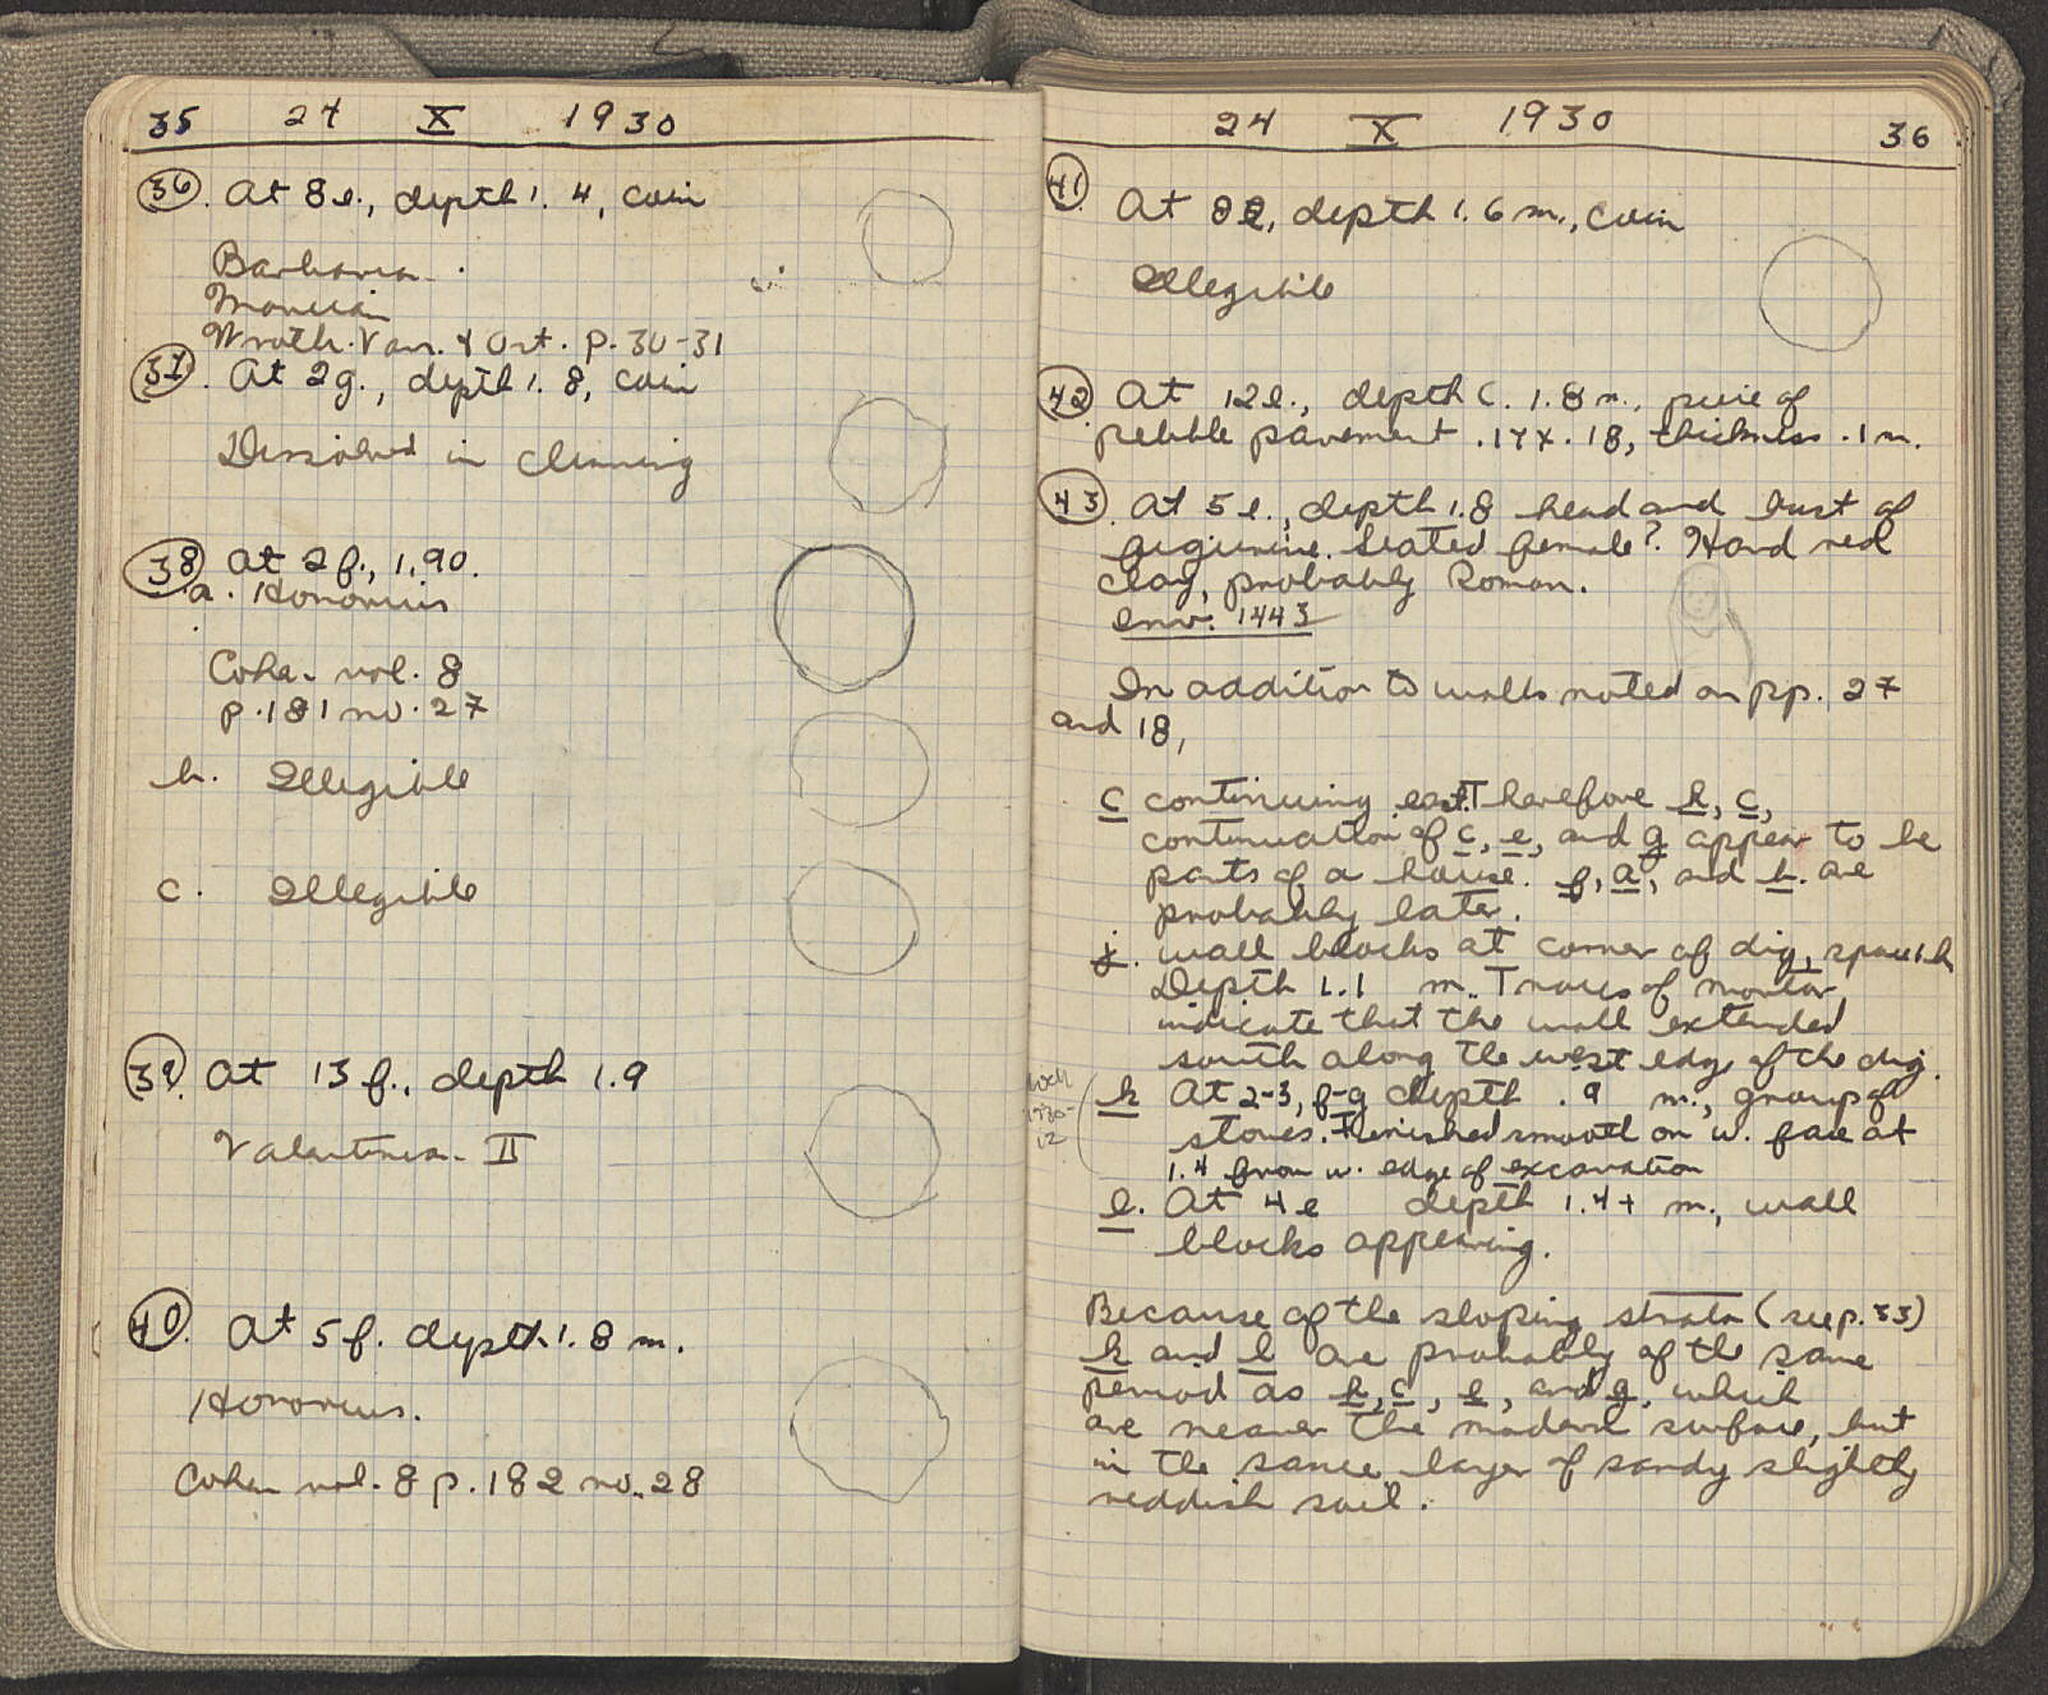 35 24 X 1930
36. At 8e., depth 1.4, coin
Barbarian
Wroth. Van. & Ost. p. 30-31
37. At 2g., depth 1.8, coin
Dissolved in cleaning
38. At 2f., 1.90.
a. Honorius
Cohen vol. 8
p. 181 no. 27
b. Illegible
c. Illegible
39. At 13f., depth 1.9
Valentinian II
40. At 5f. depth 1.8 m.
Honorius.
Cohen vol. 8 p. 182 no. 28
24 X 1930 36
41. At 8e, depth 1.6 m., coin
Illegible
42. At 12e., depth c. 1.8 m., piece of
pebble pavement .17 x .18, thickness .1 m.
43. At 5e., depth 1.8 head and bust of
figurine. Seated female? Hard red
clay, probably Roman.
Inv. 1443
In addition to walls noted on pp. 27
and 18,
c continuing east. Therefore h, c,
continuation of c, e, and g appear to be
parts of a house. f, a, and b. are
probably later.
j. wall blocks at corner of dig, space 1 h
Depth 1.1 m. Traces of mortar
indicate that the wall extended
south along the west edge of the dig.
1930-
12
k At 2-3, f-g depth .9 m., group of
stones. Finished smooth on w. face at
1.4 from w. edge of excavation
l. At 4e depth 1.4+ m., wall
blocks appearing.
Because of the sloping strata (see p. 33)
k and l are probably of the same
period as h, c, e, and g, which
are nearer the modern surface, but
in the same layer of sandy slightly
reddish soil.